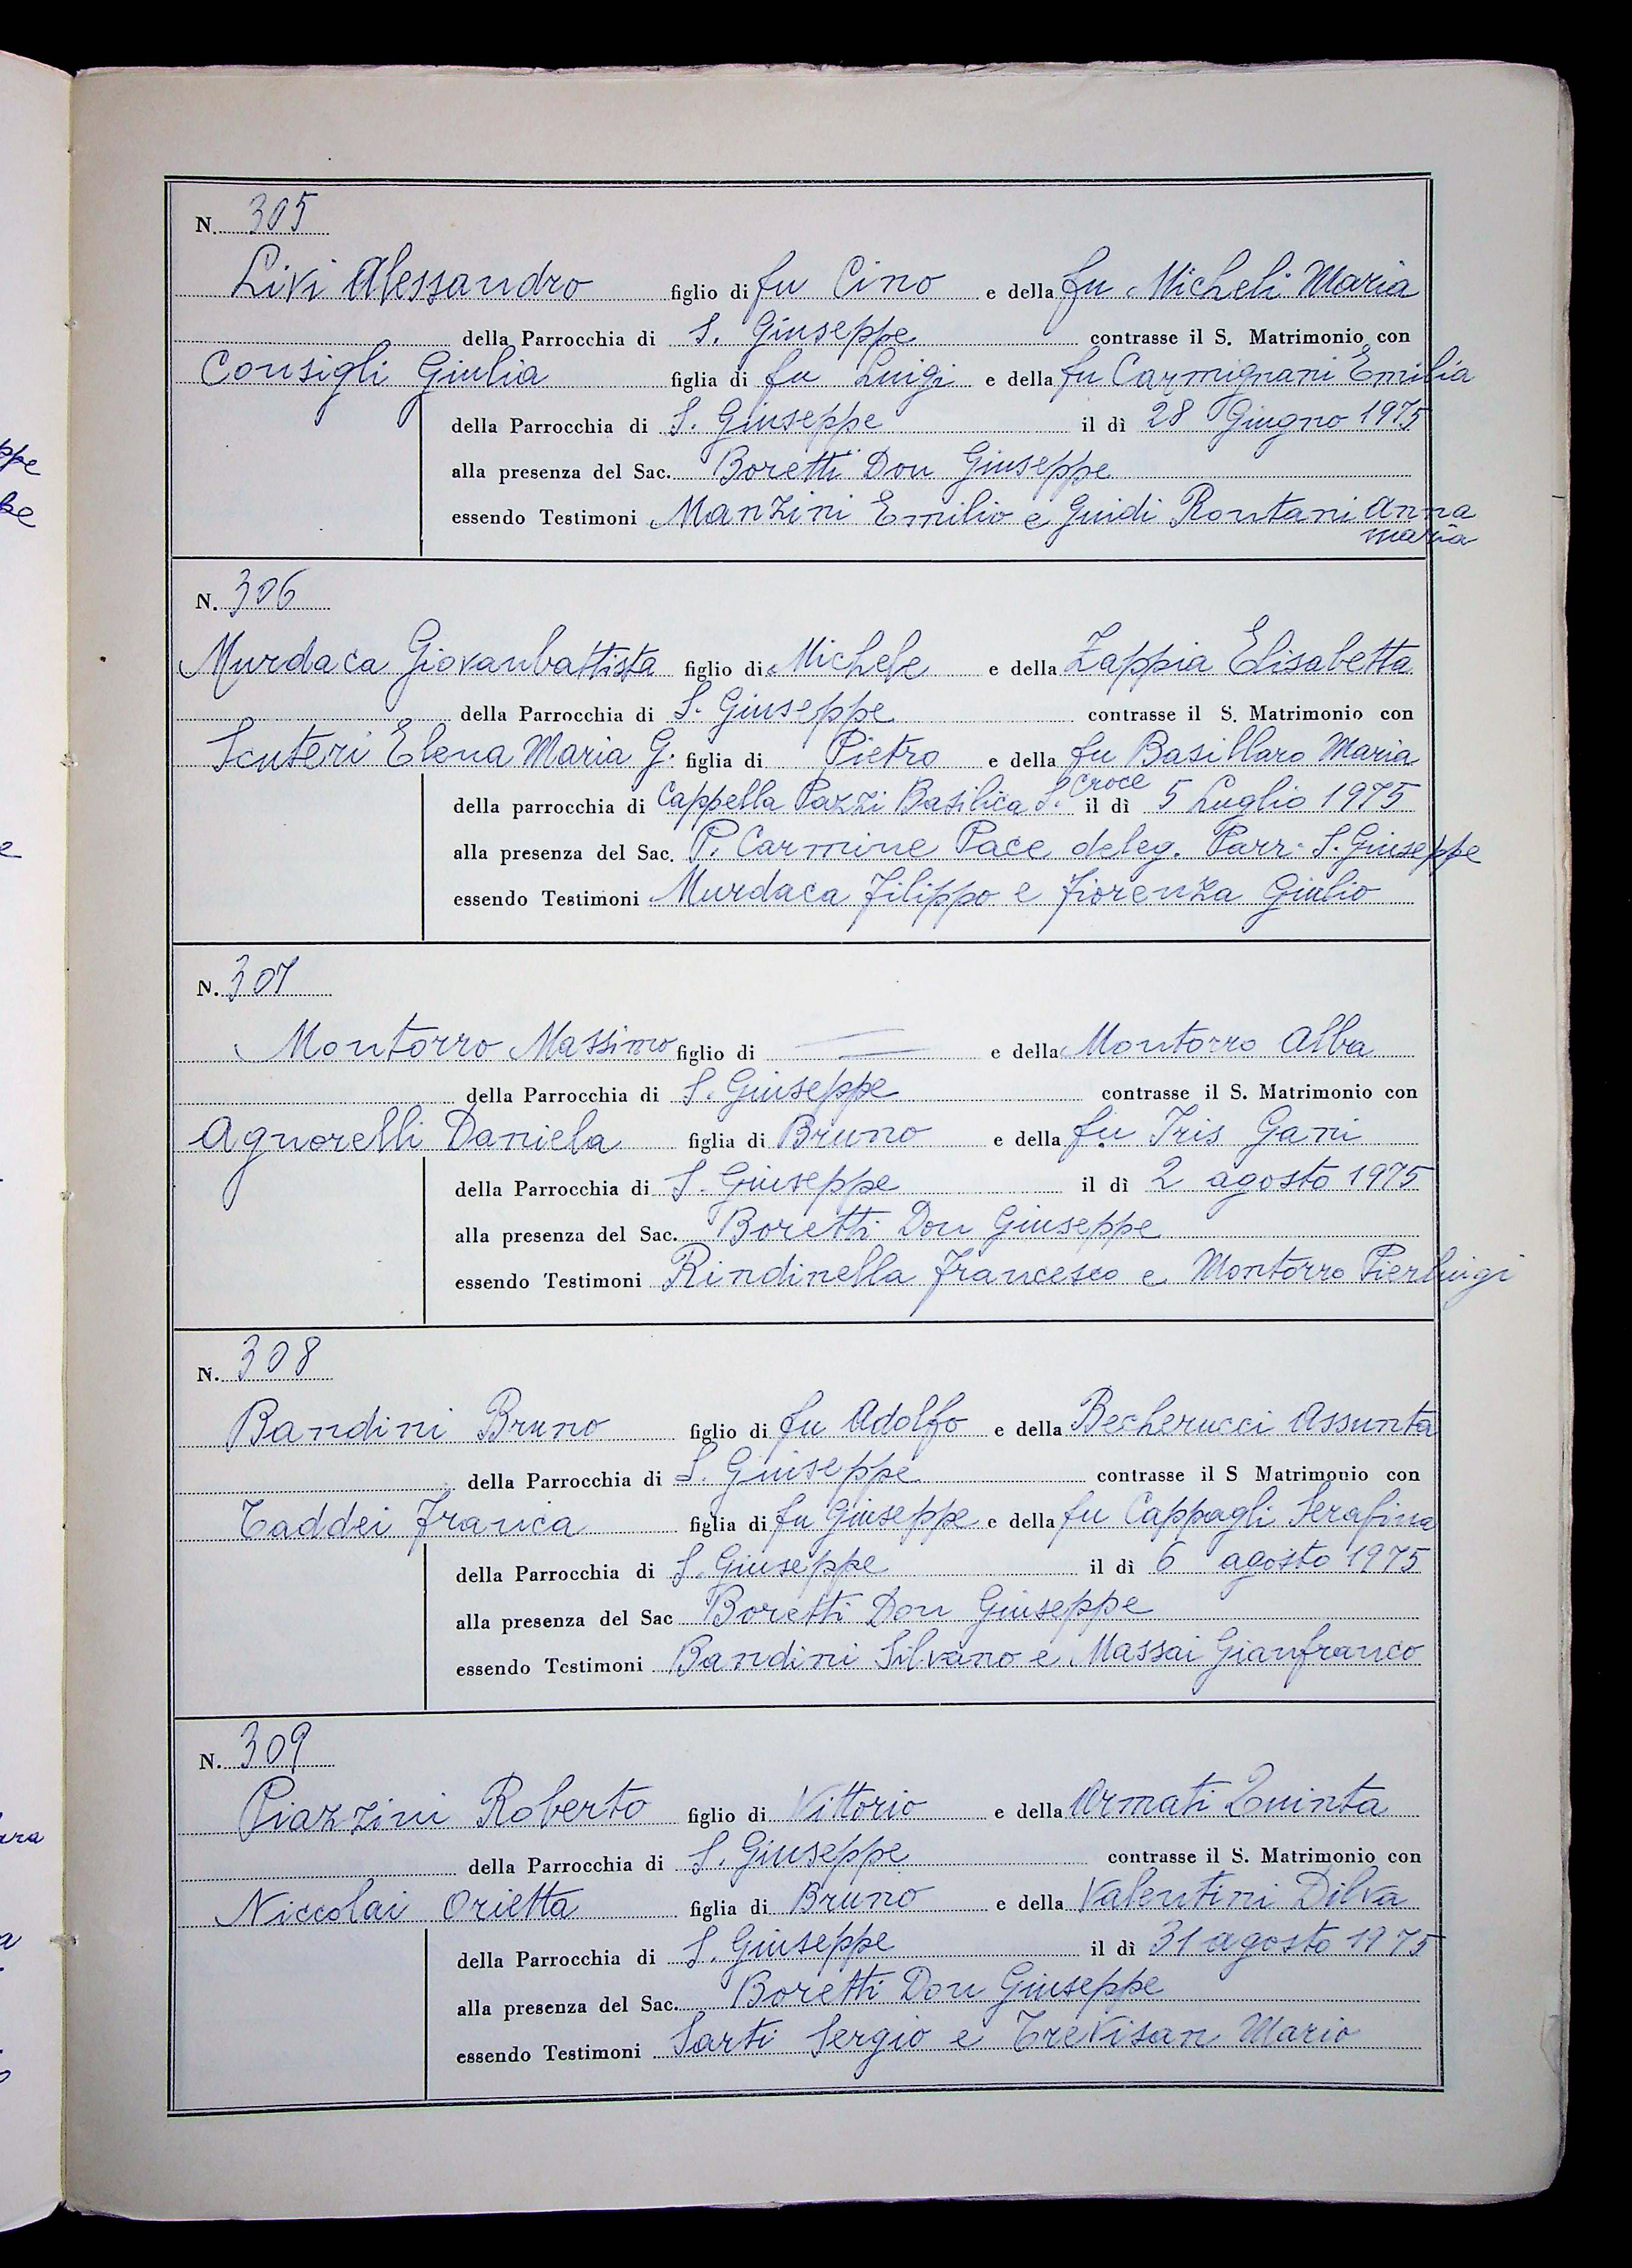 N. 305
Livi Alessandro figlio di fu Cino e della fu Micheli Maria
della Parrocchia di S. Giuseppe contrasse il S. Matrimonio con
Consigli Giulia figlia di fu Luigi e della fu Carmignani Emilia
della Parrocchia di S. Giuseppe il dì 28 Giugno 1975
alla presenza del Sac. Boretti Don Giuseppe
essendo Testimoni Manzini Emilio e Guidi Rontani Anna
maria
N. 306
Murdaca Giovanbattista figlio di Michele e della Zappia Elisabetta
della Parrocchia di S. Giuseppe contrasse il S. Matrimonio con
Scuteri Elena Maria G. figlia di Pietro e della fu Basillaro Maria
della parrocchia di Cappella Pazzi Basilica S. Croce il dì 5 Luglio 1975
alla presenza del Sac. P. Carmine Pace deleg. Parr. S. Giuseppe
essendo Testimoni Murdaca Filippo e Fiorenza Giulio
N. 307
Montorro Massimo figlio di — e della Montorro Alba
della Parrocchia di S. Giuseppe contrasse il S. Matrimonio con
Agnorelli Daniela figlia di Bruno e della fu Iris Gani
della Parrocchia di S. Giuseppe il dì 2 agosto 1975
alla presenza del Sac. Boretti Don Giuseppe
essendo Testimoni Rindinella Francesco e Montorro Pierluigi
N. 308
Bandini Bruno figlio di fu Adolfo e della Becherucci Assunta
della Parrocchia di S. Giuseppe contrasse il S Matrimonio con
Taddei Franca figlia di fu Giuseppe e della fu Cappagli Serafina
della Parrocchia di S. Giuseppe il dì 6 agosto 1975
alla presenza del Sac Boretti Don Giuseppe
essendo Testimoni Bandini Silvano e Massai Gianfranco
N. 309
Piazzini Roberto figlio di Vittorio e della Armati Quinta
della Parrocchia di S. Giuseppe contrasse il S. Matrimonio con
Niccolai Orietta figlia di Bruno e della Valentini Dilva
della Parrocchia di S. Giuseppe il dì 31 agosto 1975
alla presenza del Sac. Boretti Don Giuseppe
essendo Testimoni Sarti Sergio e Trevisan Mario